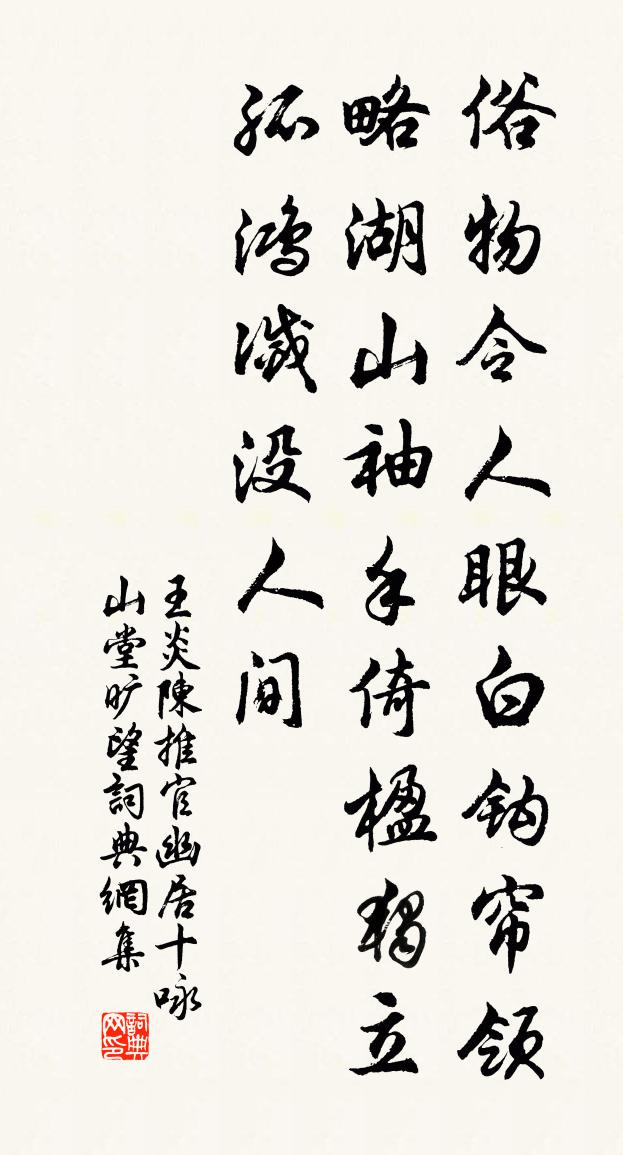 俗物令人眼白钩帘领
略湖山袖手倚楹独立
孤鸿灭没人间
王炎陳推官幽居十咏
山堂旷望詞典網集
詞典